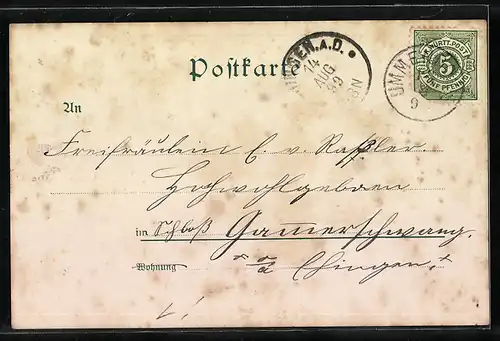 Postkarte
EN.A.D.
14
AUG
99
8N
UMM
9
K.WÜRTT.POST
5
FÜNF PFENNIG
An
Freifräulein E. v. Raßler.
Hochwohlgeboren
im Schloß Gamerschwang.
Wohnung
a/d Ehingen.
1!